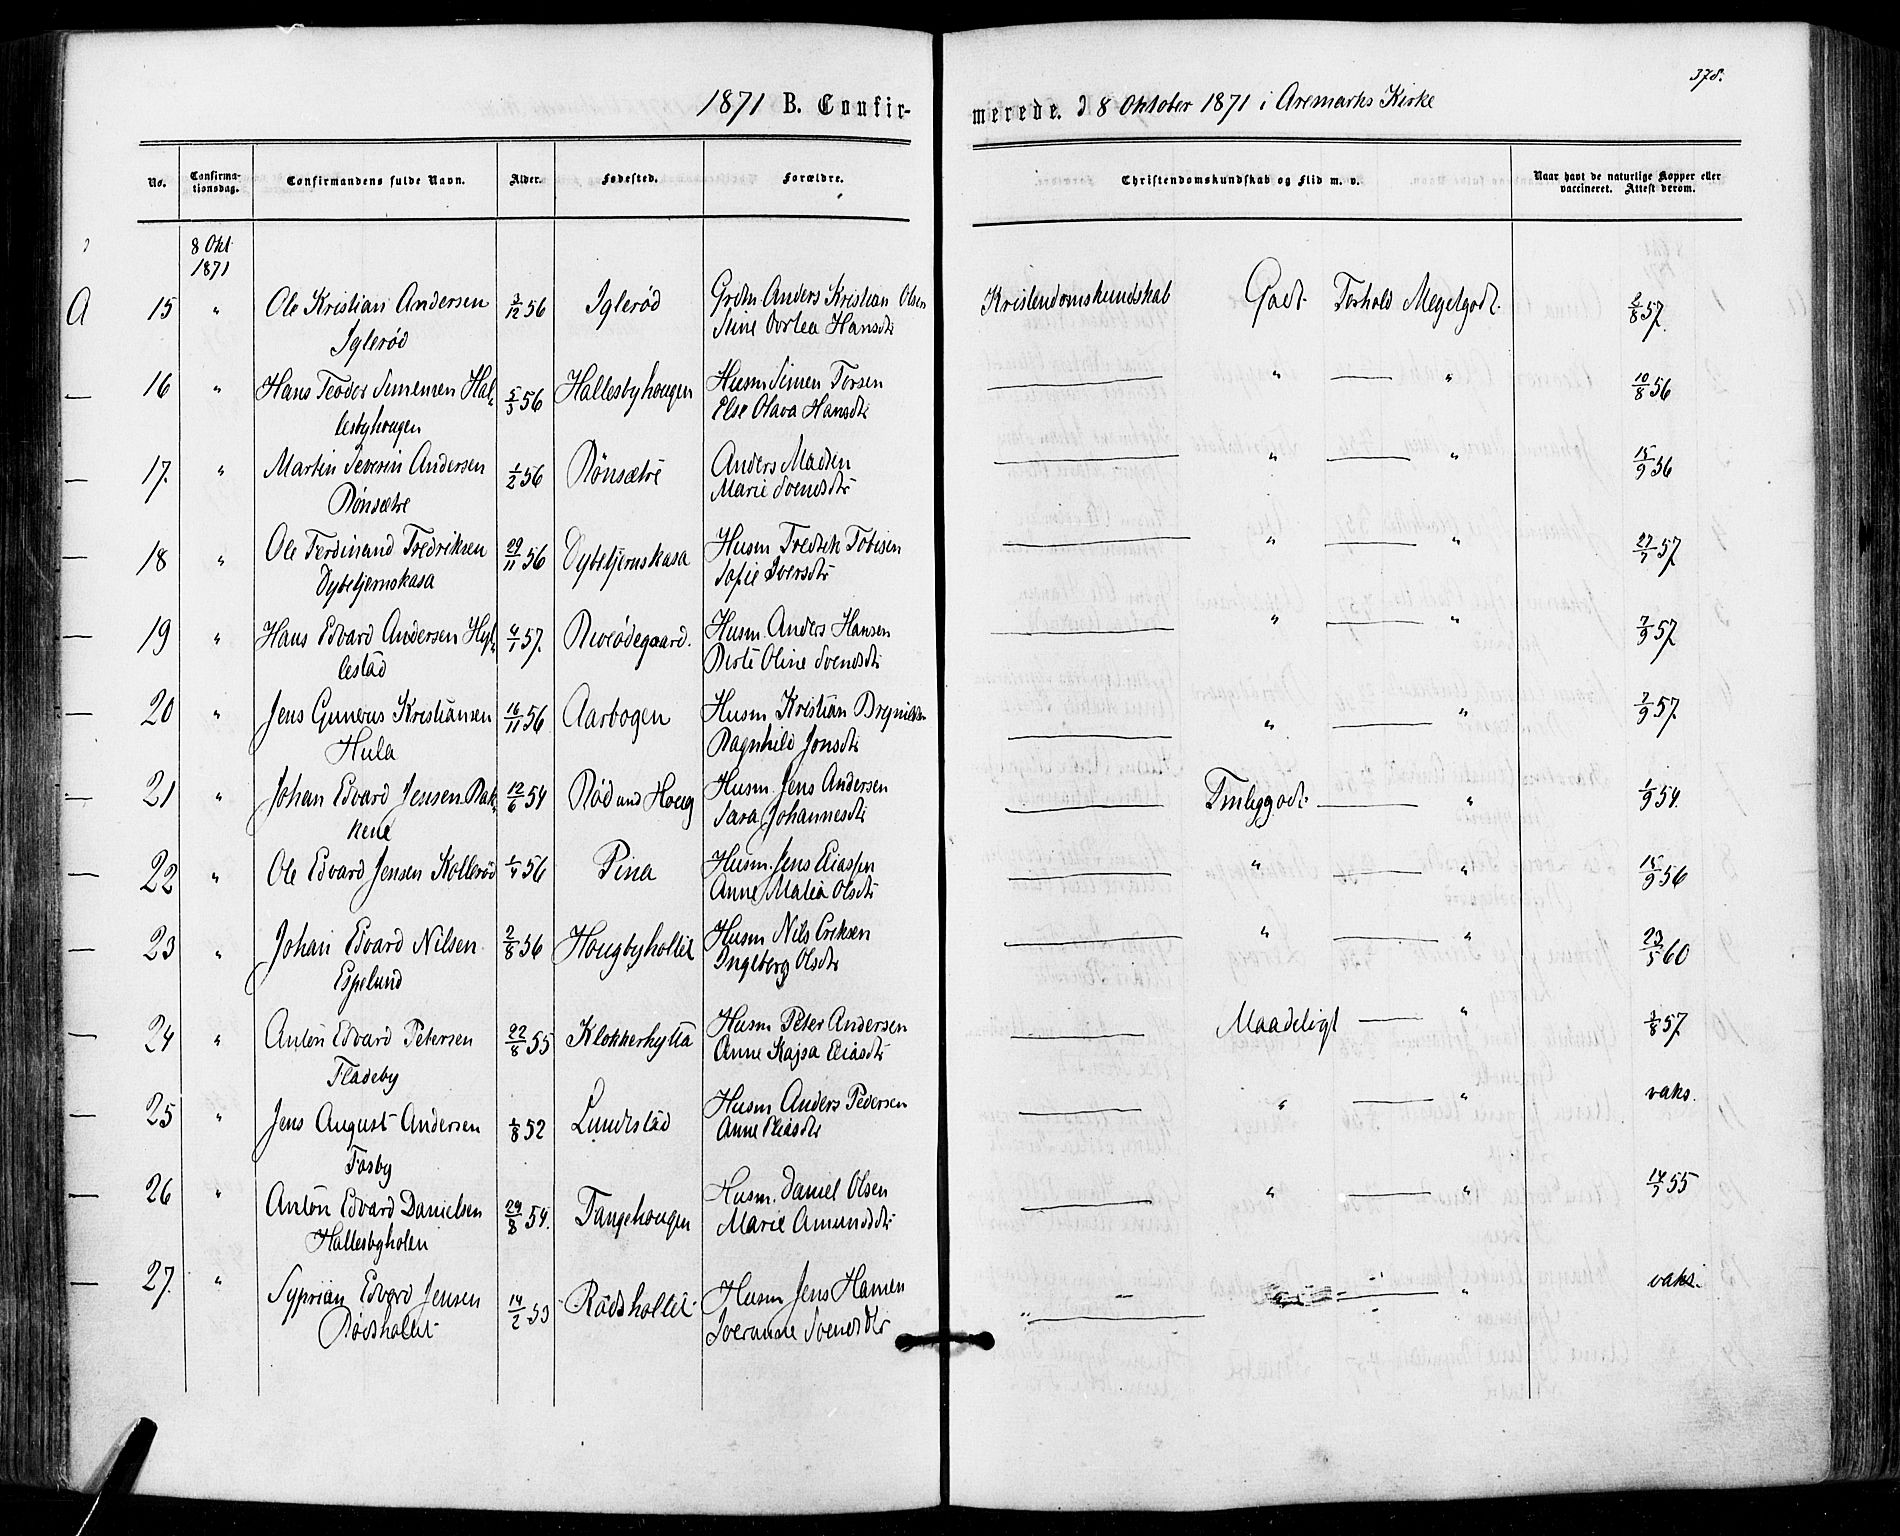 378.
1871 B. Confirmerede. d 8 Oktober 1871 i Aremarks Kirke
No. Confirmationsdag. Confirmandens fulde Navn. Alder. Fødested. Forældre. Christendomskundskab og Flid m. v. Naar havt de naturlige Kopper eller vaccineret. Attest derom.
8 Okt
1871
A 15 " Ole Kristian Andersen 3/12 56 Iglerød Grdm Anders Kristian Olsen Kristendomskundskab Godt Forhold Megetgodt. 2/8 57.
Iglerød Stine Dortea Hansdtr
— 16 " Hans Teodor Simensen Hal- 5/3 56 Hallesbyhougen Husm Simen Torsen — " — " 10/8 56
lesbyhougen Else Olava Hansdtr
— 17. " Martin Severin Andersen 1/2 56 Rønsætre Anders Madsen — " — " 15/9 56
Rønsætre Marie Svendsdtr
— 18 " Ole Ferdinand Fredriksen 29/11 56 Dybetjernskasa Husm Fredrik Tobisen — " — " 27/7 57.
Dybetjernskasa Sofie Iversdtr
— 19 " Hans Edvard Andersen Hyl- 6/1 57. Husm. Anders Hansen — " — " 7/9 57
lestad Berte Oline Svendsdtr
— 20 " Jens Gunerus Kristiansen 16/11 56 Aarbogen Husm. Kristian Brynildsen — " — " 7/9 57.
Hula Ragnhild Jonsdtr
— 21 " Johan Edvard Jensen Bak- 12/6 54 Rød und Houg Husm. Jens Andersen — Tmliggodt. — " 1/9 54.
kene Sara Johannesdtr
— 22 " Ole Edvard Jensen Kollerød 1/4 56 Pina Husm. Jens Eliassen — " — " 15/9 56
Anne Malia Olsdtr
— 23 " Johan Edvard Nilsen 2/8 56 Hougbyholtet Husm Nils Eriksen — " — " 23/5 60
Espelund Ingeborg Olsdtr
— 24 " Anton Edvard Petersen 22/8 55 Klokkerhytta Husm Peter Andersen — Maadeligt — " 3/8 57.
Fladeby Anne Kajsa Eliasdtr
— 25 " Jens August Andersen 1/8 52 Lundestad Husm Anders Pedersen — " — " vaks.
Fosby Anne Eliasdtr
— 26 " Anton Edvard Danielsen 24/8 54. Tangehougen Husm. Daniel Olsen — " — " 14/7 55
Hallesbyholen Marie Amundsdtr
— 27. " Syprian Edvard Jensen 14/2 53 Rødsholtet Husm Jens Hansen " — " — " vaks.
Rødsholtet Iveranne Svendsdtr